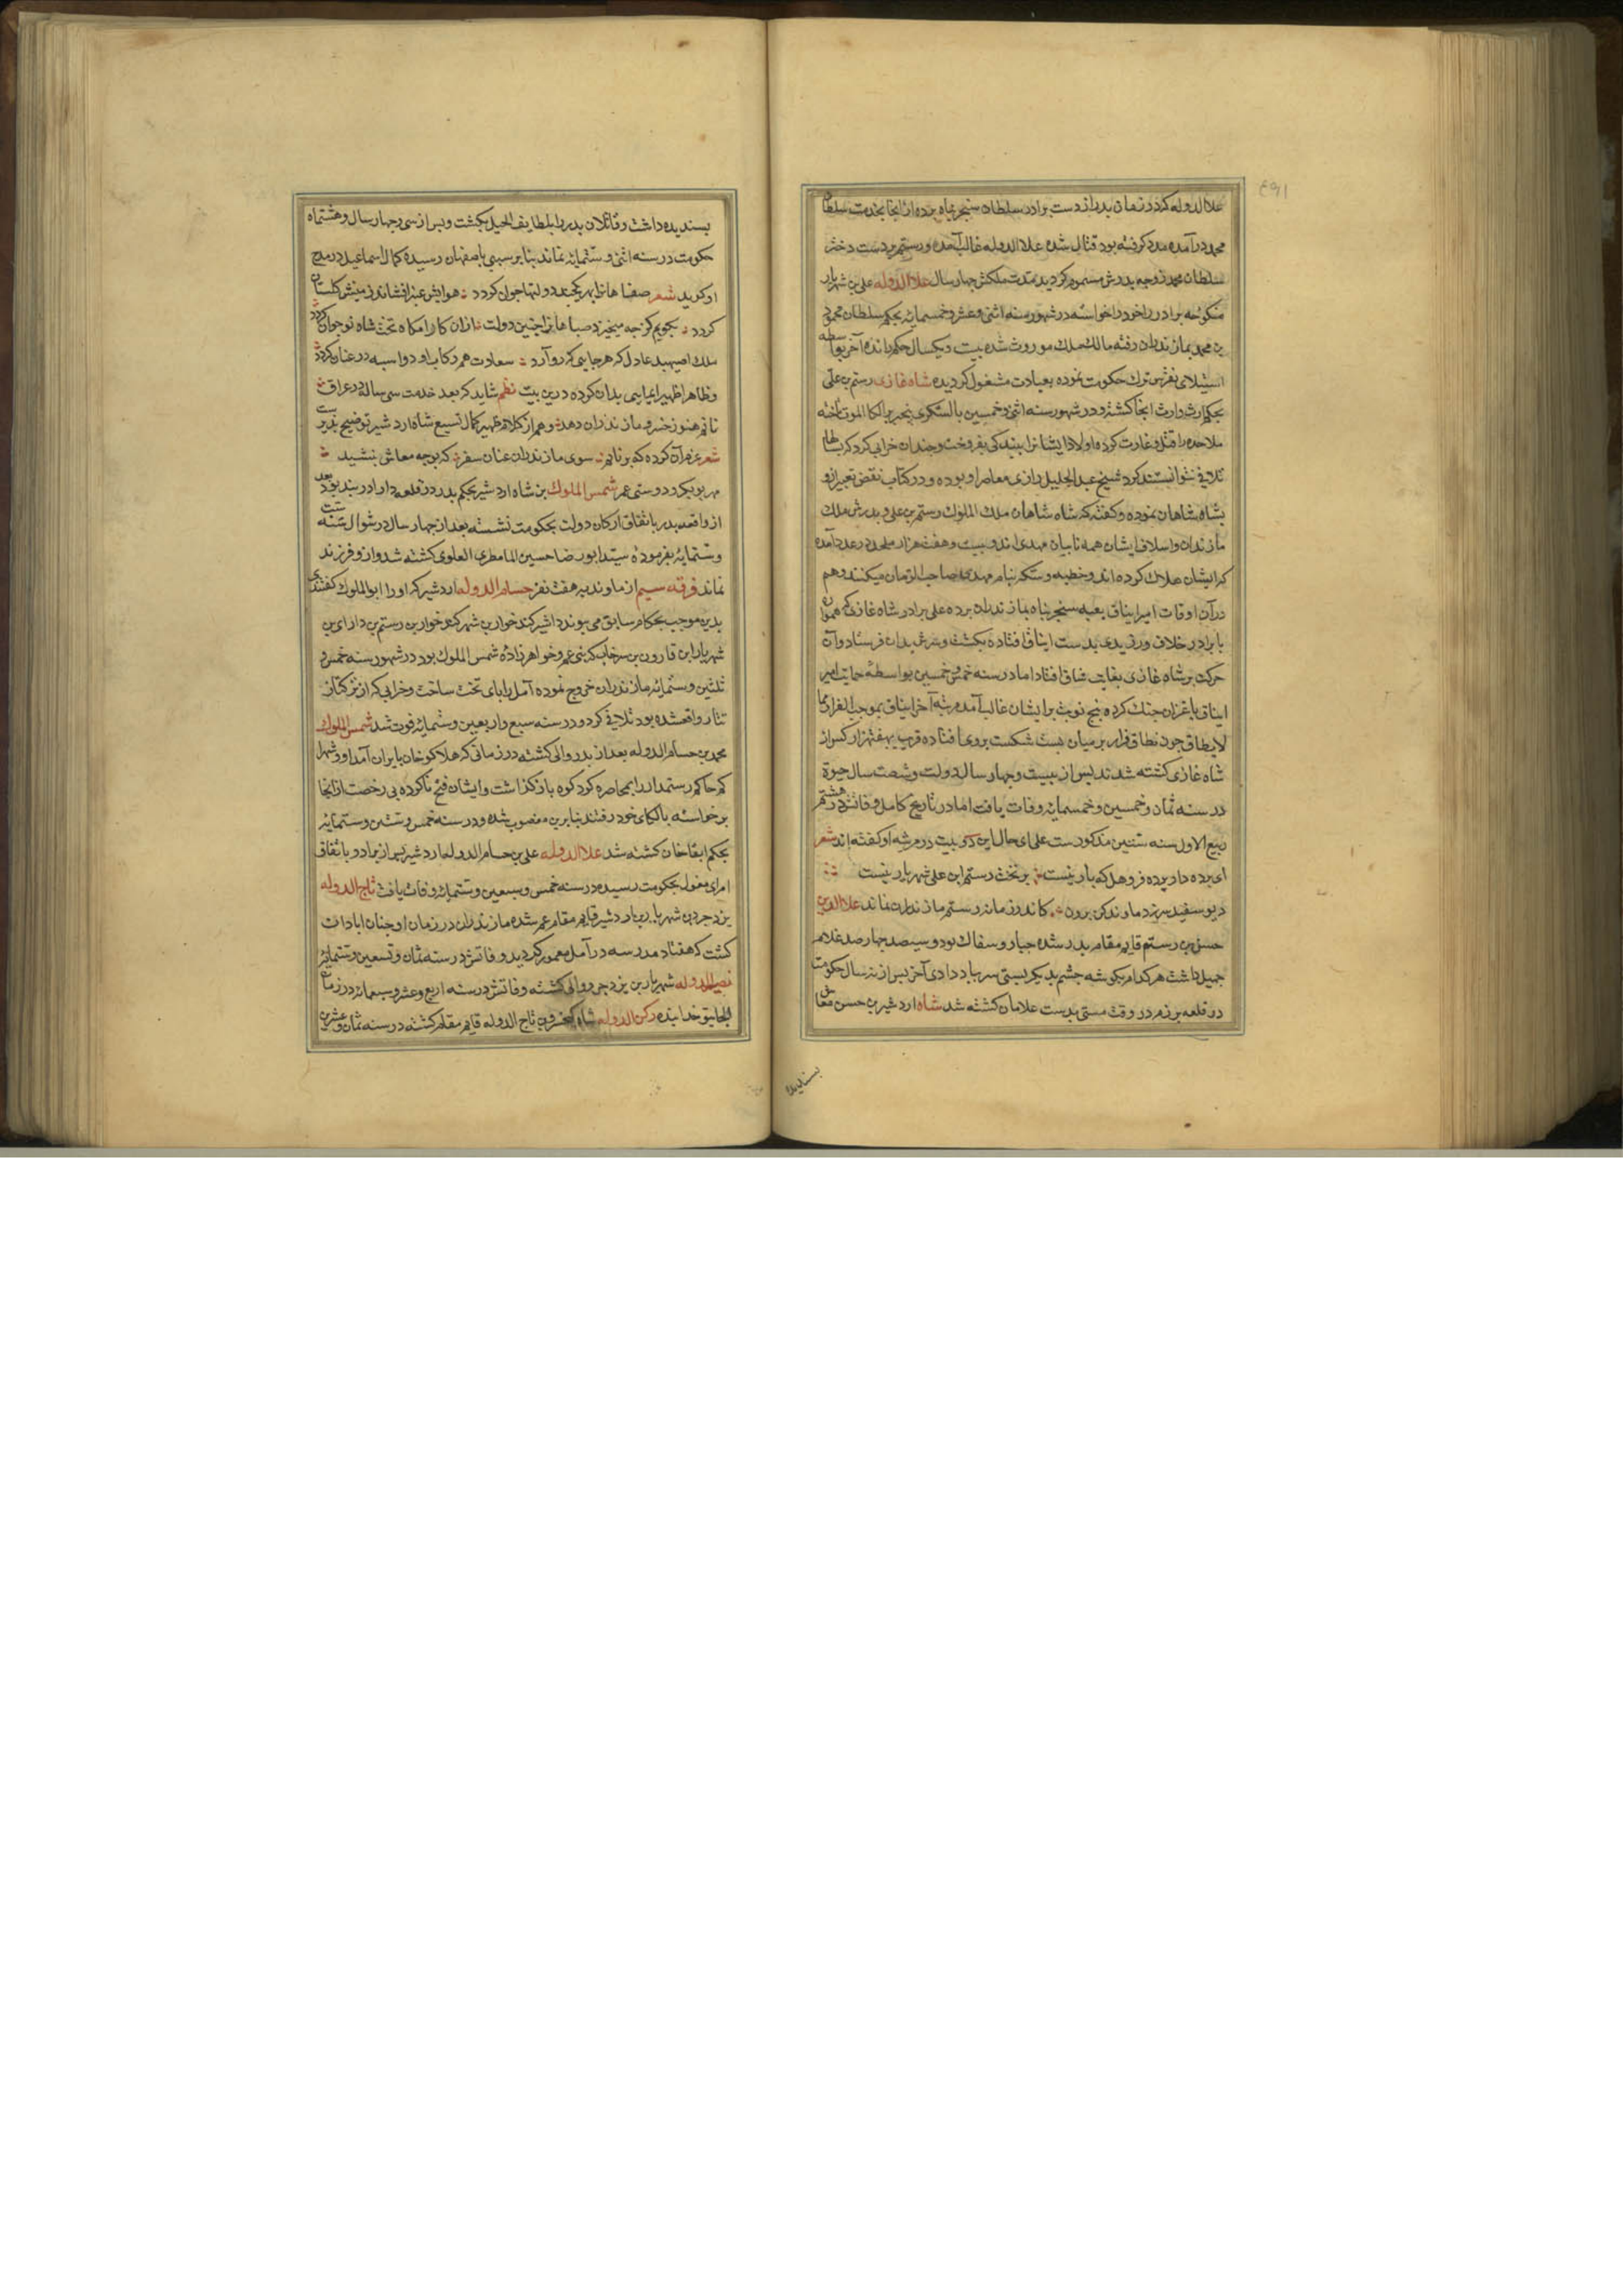 علاالدوله کرد در زمان پدر از دست برادر سلطان سنجر پناه برده از انجا بخدمت سلطان
محمد در آمده مدد کرفته بود قتال شده علاالدوله غالب آمده و رستم بر دست دختر
سلطان محمد زوجه پدرش مسموم کردید مدت ملکش چهار سال علاالدوله علی بن شهریار
منکوحه برادر را خود را خواسته در شهور سنه اثنی و عشر و خمسمایه بحکم سلطان محمود
بن محمد بمازندران رفته مالک ملک موروث شده بیست و یکسال حکم رانده آخر بواسطه
استیلای نقرس ترک حکومت نموده بعبادت مشغول کردیده شاه غازی رستم بن علی
بحکم ارث وارث انجا کشته و در شهور سنه اثنی و خمسین بالشکری بر الکا الموت تاخته
ملاحده را قتل و غارت کرده اولاد ایشانرا ببندکی بفروخت و چندان خرابی کرد که بسالها
تلافی نتوانستند کرد شیخ عبدالجلیل رازی معاصر او بوده و در کتاب نقض تعبیر ازو
بشاه شاهان نموده و کفته که شاه شاهان ملک الملوک رستم بن علی و پدرش ملک
مازندران و اسلاف ایشان همه نایبان مهدی اند و بیست و هفت هزار ملحد در عدد آمده
که ایشان هلاک کرده اند و خطبه و سکه بنام مهدی صاحب الزمان میکنند و هم
در آن اوقات امیر ایناق بعیه سنجر پناه بمازندران برده علی برادر شاه غازی که همواره
با برادر خلاف ورزیدی بدست ایناق افتاده بکشت و سرش بدان فرستاد و آن
حرکت بر شاه غازی بغایت شاق افتاد اما در سنه خمس و خمسین بواسطه حمایت امیر
ایناق با غزان جنک کرده پنج نوبت برایشان غالب آمده مرتبه آخر ایناق بموجب الفرار مما
لایطاق چون نطاق فرار بر میان بست شکست بروی افتاده قریب بهفت هزار کس از
شاه غازی کشته شدند پس از بیست و چهار سال دولت و شصت سال حیوة
در سنه ثمان و خمسین و خمسمایه وفات یافت اما در تاریخ کامل وفاتش در هشتم
ربیع الاول سنه ستین مذکورست علی ای حال این دو بیت در مرثیه او کفته اند شعر
ای پرده دار پرده فروهل که بار نیست بر تخت رستم ابن علی شهریار نیست
دیو سفید سر ز دماوند کن برون کاندر زمانه رستم مازندران نماند علاالدین
حسن بن رستم قایم مقام پدر شده جبار و سفاک بود و سیصد چهارصد غلام
جمیل داشت هر کدام بکوشه چشم بدیکر بستی سر بباد دادی آخر پس از نه سال حکومت
در قلعه برزم در وقت مستی بدست غلامان کشته شد شاه اردشیر بن حسن معاش
پسندیده
پسندیده داشت و قاتلان پدر را بلطایف الحیل بکشت و پس از سی و چهار سال و هشتماه
حکومت در سنه اثنی و ستمایه نماند بنابر سببی باصفهان رسیده کمال اسماعیل در مدح
او کوید شعر صفاهانرا بهر یکچند دولتها جوان کردد هوایش عنبر افشاند زمینش کلستان
کردد بکویم کز چه میخیزد صباهانرا چنین دولت ازان کارامکاه تخت شاه نوجوان کردد
ملک اصپهبد عادل که هر جایی که رو آرد سعادت هم رکاب او دواسبه در عنان کردد
و ظاهرا ظهیر ایمایی بدان کرده درین بیت نظم شاید که بعد خدمت سی ساله در عراق
نانم هنوز خسرو مازندران دهد و هم از کلام ظهیر کمال تسیع شاه اردشیر توضیح پذیرست
شعر عزم آن کرده که برتابم سوی مازندران عنان سفر که بوجه معاش بنشید
مهر بوبکر و دوستی عمر شمس الملوک بن شاه اردشیر بحکم پدر در قلعه دارا در بند بود بعد
از واقعه پدر باتفاق ارکان دولت بحکومت نشسته بعد از چهار سال در شوال سنه ست
و ستمایه بفرموده سید ابو رضا حسین المامطری العلوی کشته شد و ازو فرزند
نماند فرقه سیم از ماوندیه هفت نفر حسام الدوله اردشیر که او را ابوالملوک کفتندی
بدین موجب بحکام سابق می پیوندد اشیر کندخوار بن شهر کندخوار بن رستم بن دارای بن
شهریار ابن قارون بن سرخاب که بنی عم و خواهرزاده شمس الملوک بود در شهور سنه خمس و
ثلثین و ستمایه مازندران خروج نموده آمل را پای تخت ساخت و خرابی که از ترکتاز
تتار واقعشده بود تلافی کرد و در سنه سبع و اربعین و ستمایه فوت شد شمس الملوک
محمد بن حسام الدوله بعد از پدر والی کشته در زمانی که هلاکوخان بایران آمد او و شهرا
کم حاکم رستمدار را بمحاصره کردکوه بازکذاشت و ایشان فتح ناکرده بی رخصت از انجا
برخواسته بالکای خود رفتند بنابرین مغضوب شده و در سنه خمس و ستین و ستمایه
بحکم ابقاخان کشته شد علاالدوله علی بن حسام الدوله اردشیر پس از برادر و باتفاق
امرای مغول بحکومت رسیده در سنه خمس و سبعین و ستمایه وفات یافت تاج الدوله
یزدجرد بن شهریار بن اردشیر قایم مقام عم شده مازندران در زمان او چنان ابادان
کشت که هفتاد مدرسه در آمل معمور کردید وفاتش در سنه ثمان و تسعین و ستمایه
نصیرالدوله شهریار بن یزدجرد والی کشته وفاتش در سنه اربع و عشر و سبعمایه در زمان
الجایتو خدابنده رکن الدوله شاه کیخسرو بن تاج الدوله قایم مقام کشته در سنه ثمان و عشرین